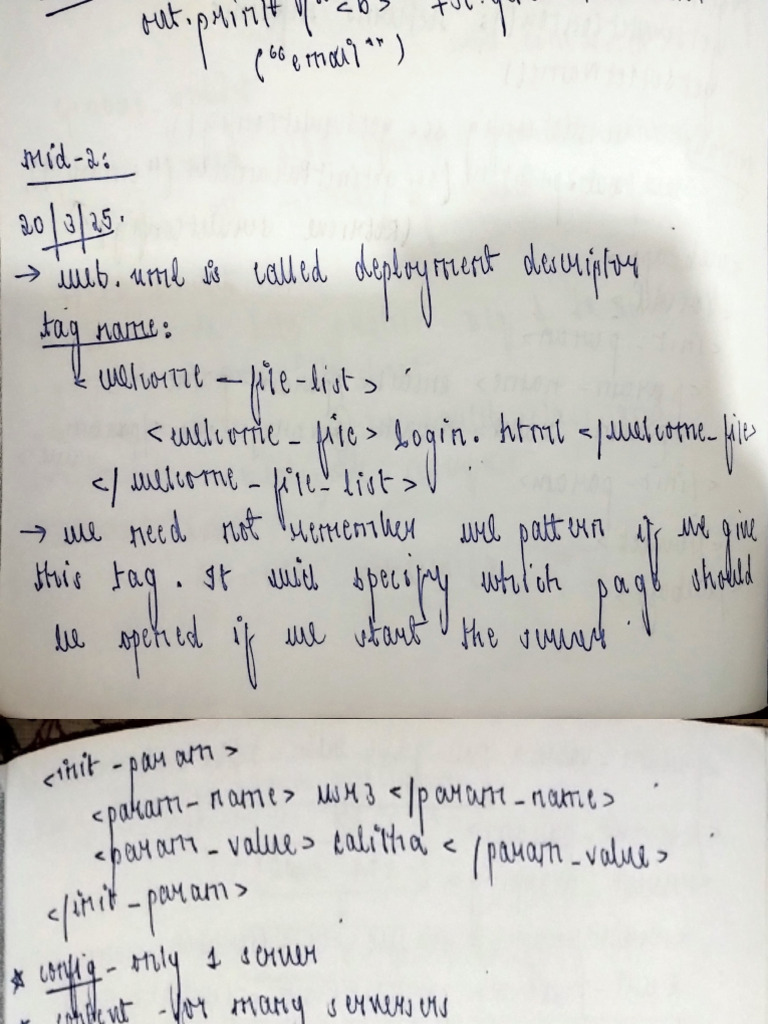 out.println("<b>
("email")
mid-2:
20/3/25.
→ web.xml is called deployment descriptor
tag name:
<welcome-file-list>
<welcome-file> Login.html </welcome-file>
</welcome-file-list>
→ we need not remember url pattern if we give
this tag. It will specify which page should
be opened if we start the server
<init-param>
<param-name> usr3 </param-name>
<param-value> Lalitha </param-value>
</init-param>
* config - only 1 server
- for many serversers